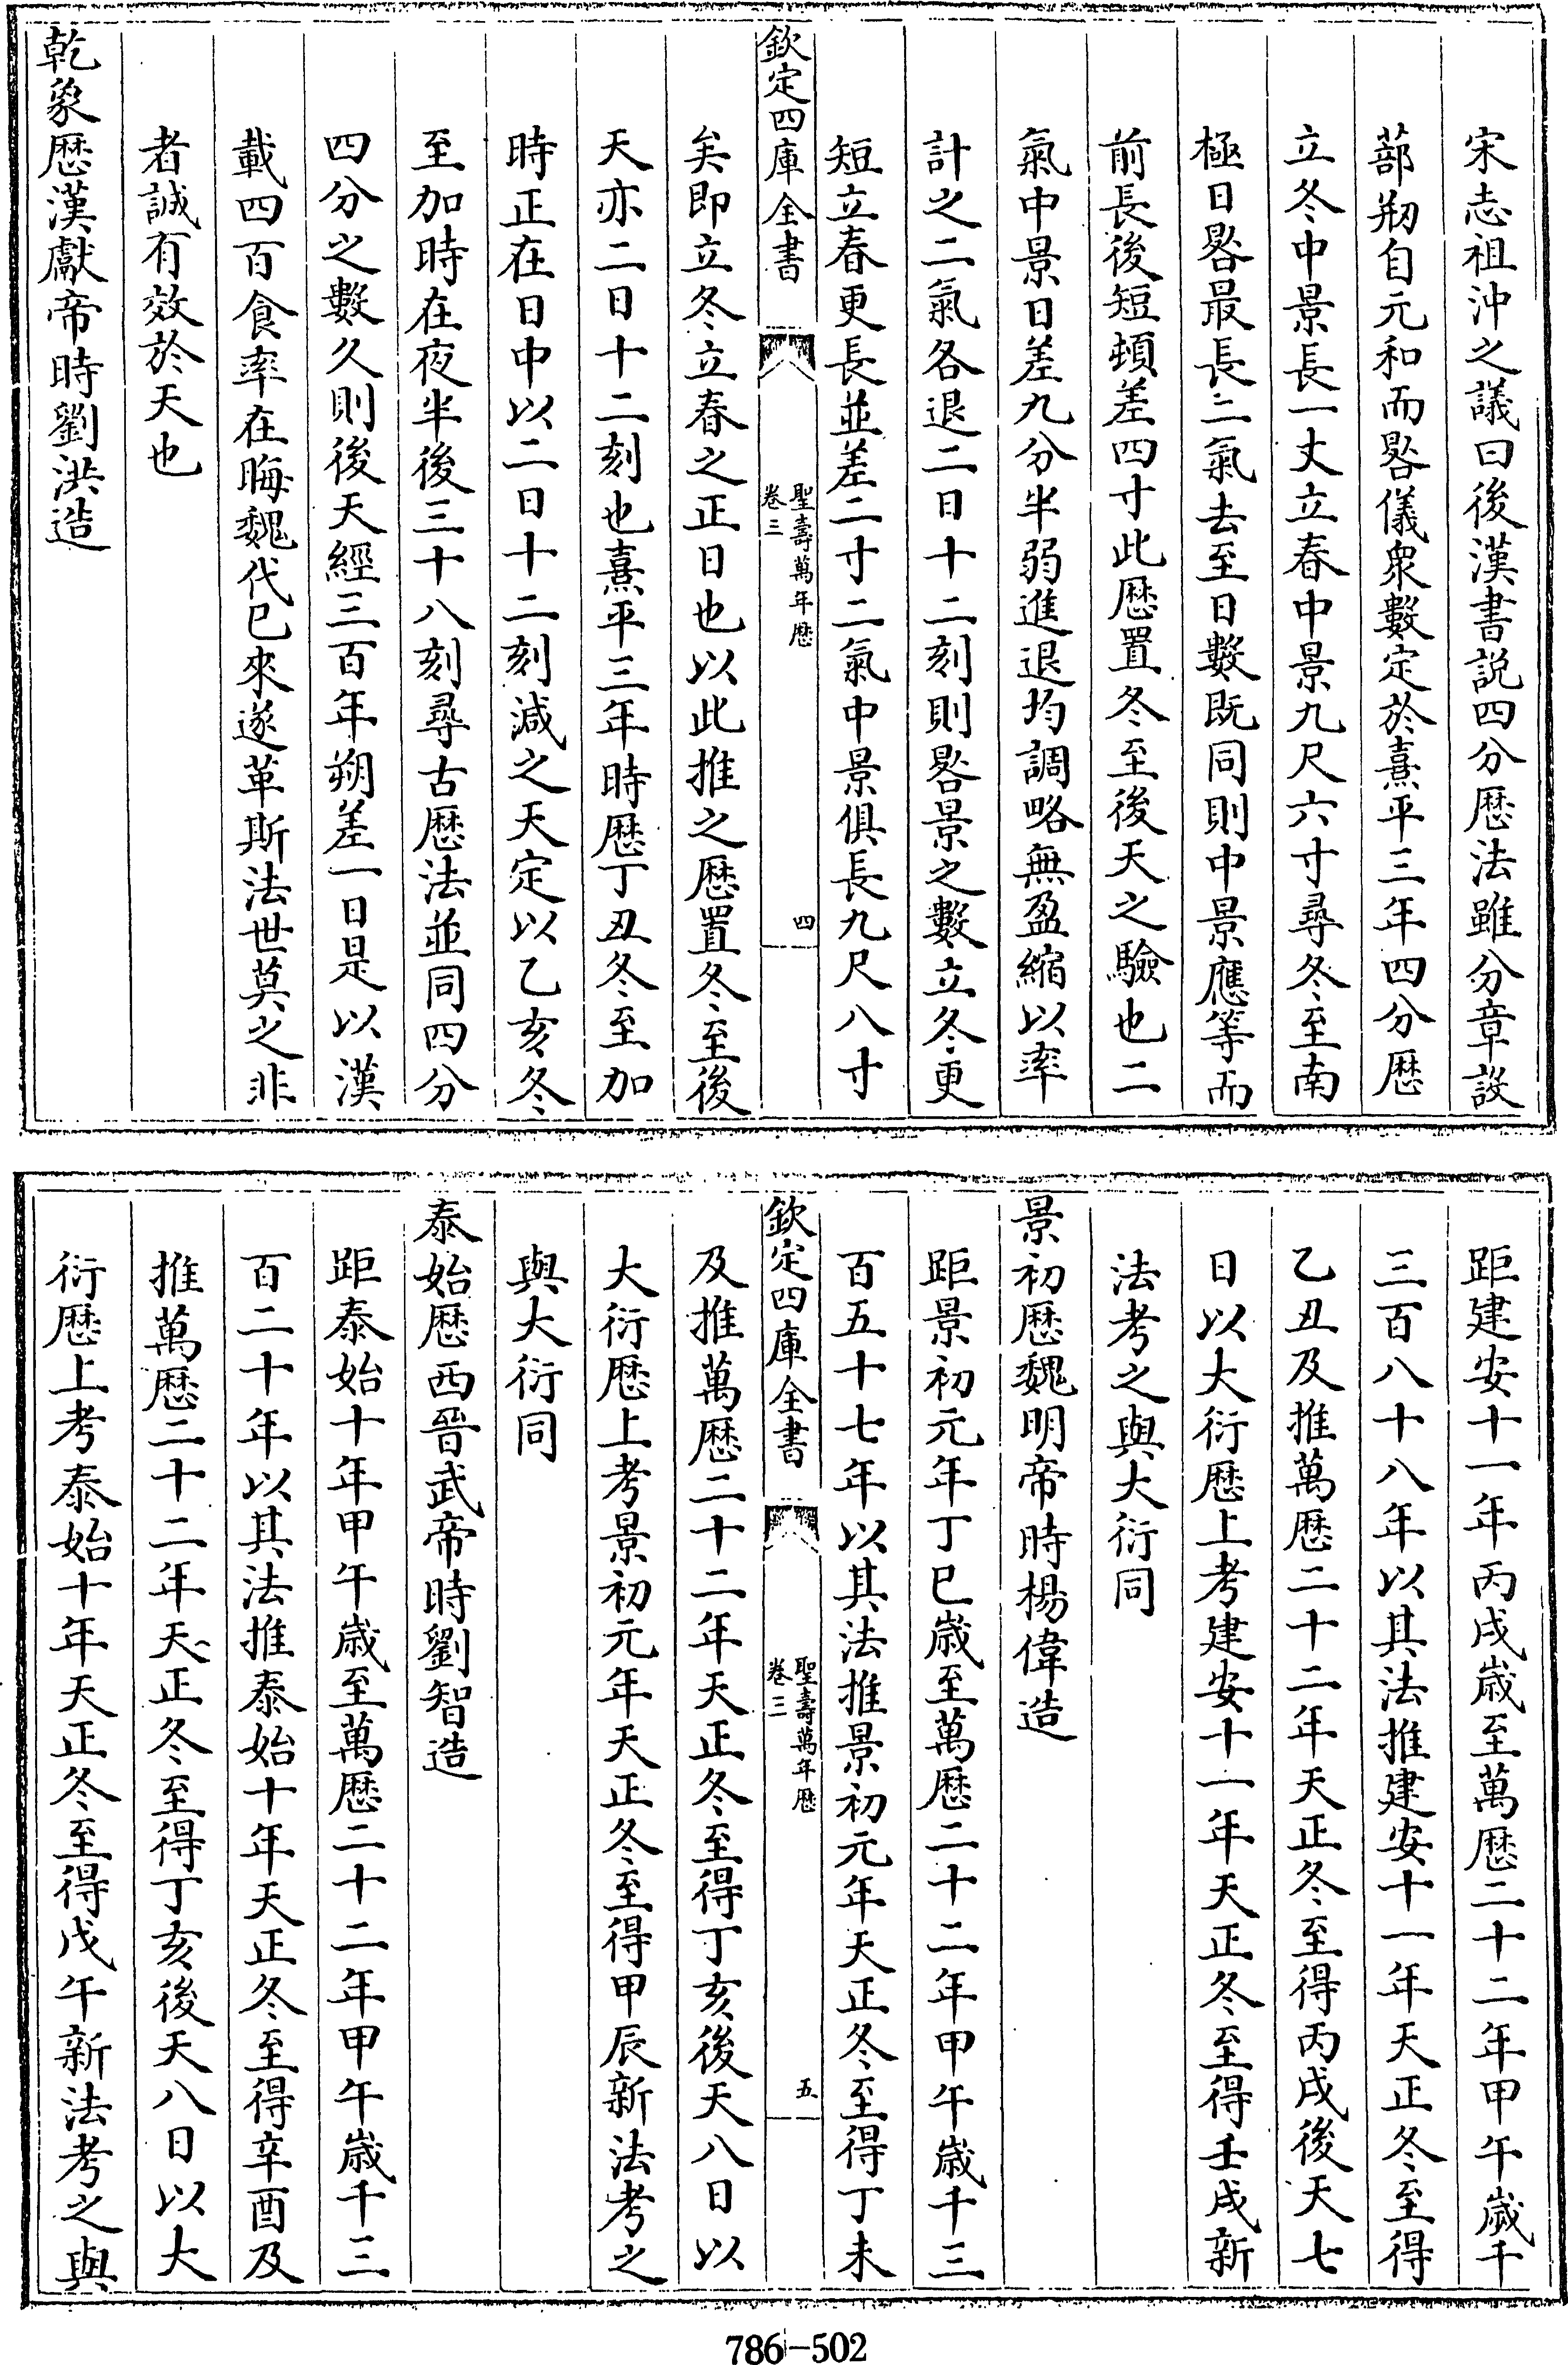 宋志祖沖之議曰後漢書説四分歴法雖分章設
蔀剏自元和而晷儀衆數定於熹平三年四分歴
立冬中景長一丈立春中景九尺六寸尋冬至南
極日晷最長二氣去至日數既同則中景應等而
前長後短頓差四寸此歴置冬至後天之驗也二
氣中景日差九分半弱進退均調略無盈縮以率
計之二氣各退二日十二刻則晷景之數立冬更
短立春更長並差二寸二氣中景俱長九尺八寸
欽定四庫全書
聖壽萬年歴
卷三
四
矣即立冬立春之正日也以此推之歴置冬至後
天亦二日十二刻也熹平三年時歴丁丑冬至加
時正在日中以二日十二刻減之天定以乙亥冬
至加時在夜半後三十八刻尋古歴法並同四分
四分之數久則後天經三百年朔差一日是以漢
載四百食率在晦魏代已來遂革斯法世莫之非
者誠有效於天也
乾象歴漢獻帝時劉洪造
距建安十一年丙戌歳至萬歴二十二年甲午歳千
三百八十八年以其法推建安十一年天正冬至得
乙丑及推萬歴二十二年天正冬至得丙戌後天七
日以大衍歴上考建安十一年天正冬至得壬戌新
法考之與大衍同
景初歴魏明帝時楊偉造
距景初元年丁巳歳至萬歴二十二年甲午歳千三
百五十七年以其法推景初元年天正冬至得丁未
欽定四庫全書
聖壽萬年歴
卷三
五
及推萬歴二十二年天正冬至得丁亥後天八日以
大衍歴上考景初元年天正冬至得甲辰新法考之
與大衍同
泰始歴西晉武帝時劉智造
距泰始十年甲午歳至萬歴二十二年甲午歳千三
百二十年以其法推泰始十年天正冬至得辛酉及
推萬歴二十二年天正冬至得丁亥後天八日以大
衍歴上考泰始十年天正冬至得戊午新法考之與
786-502